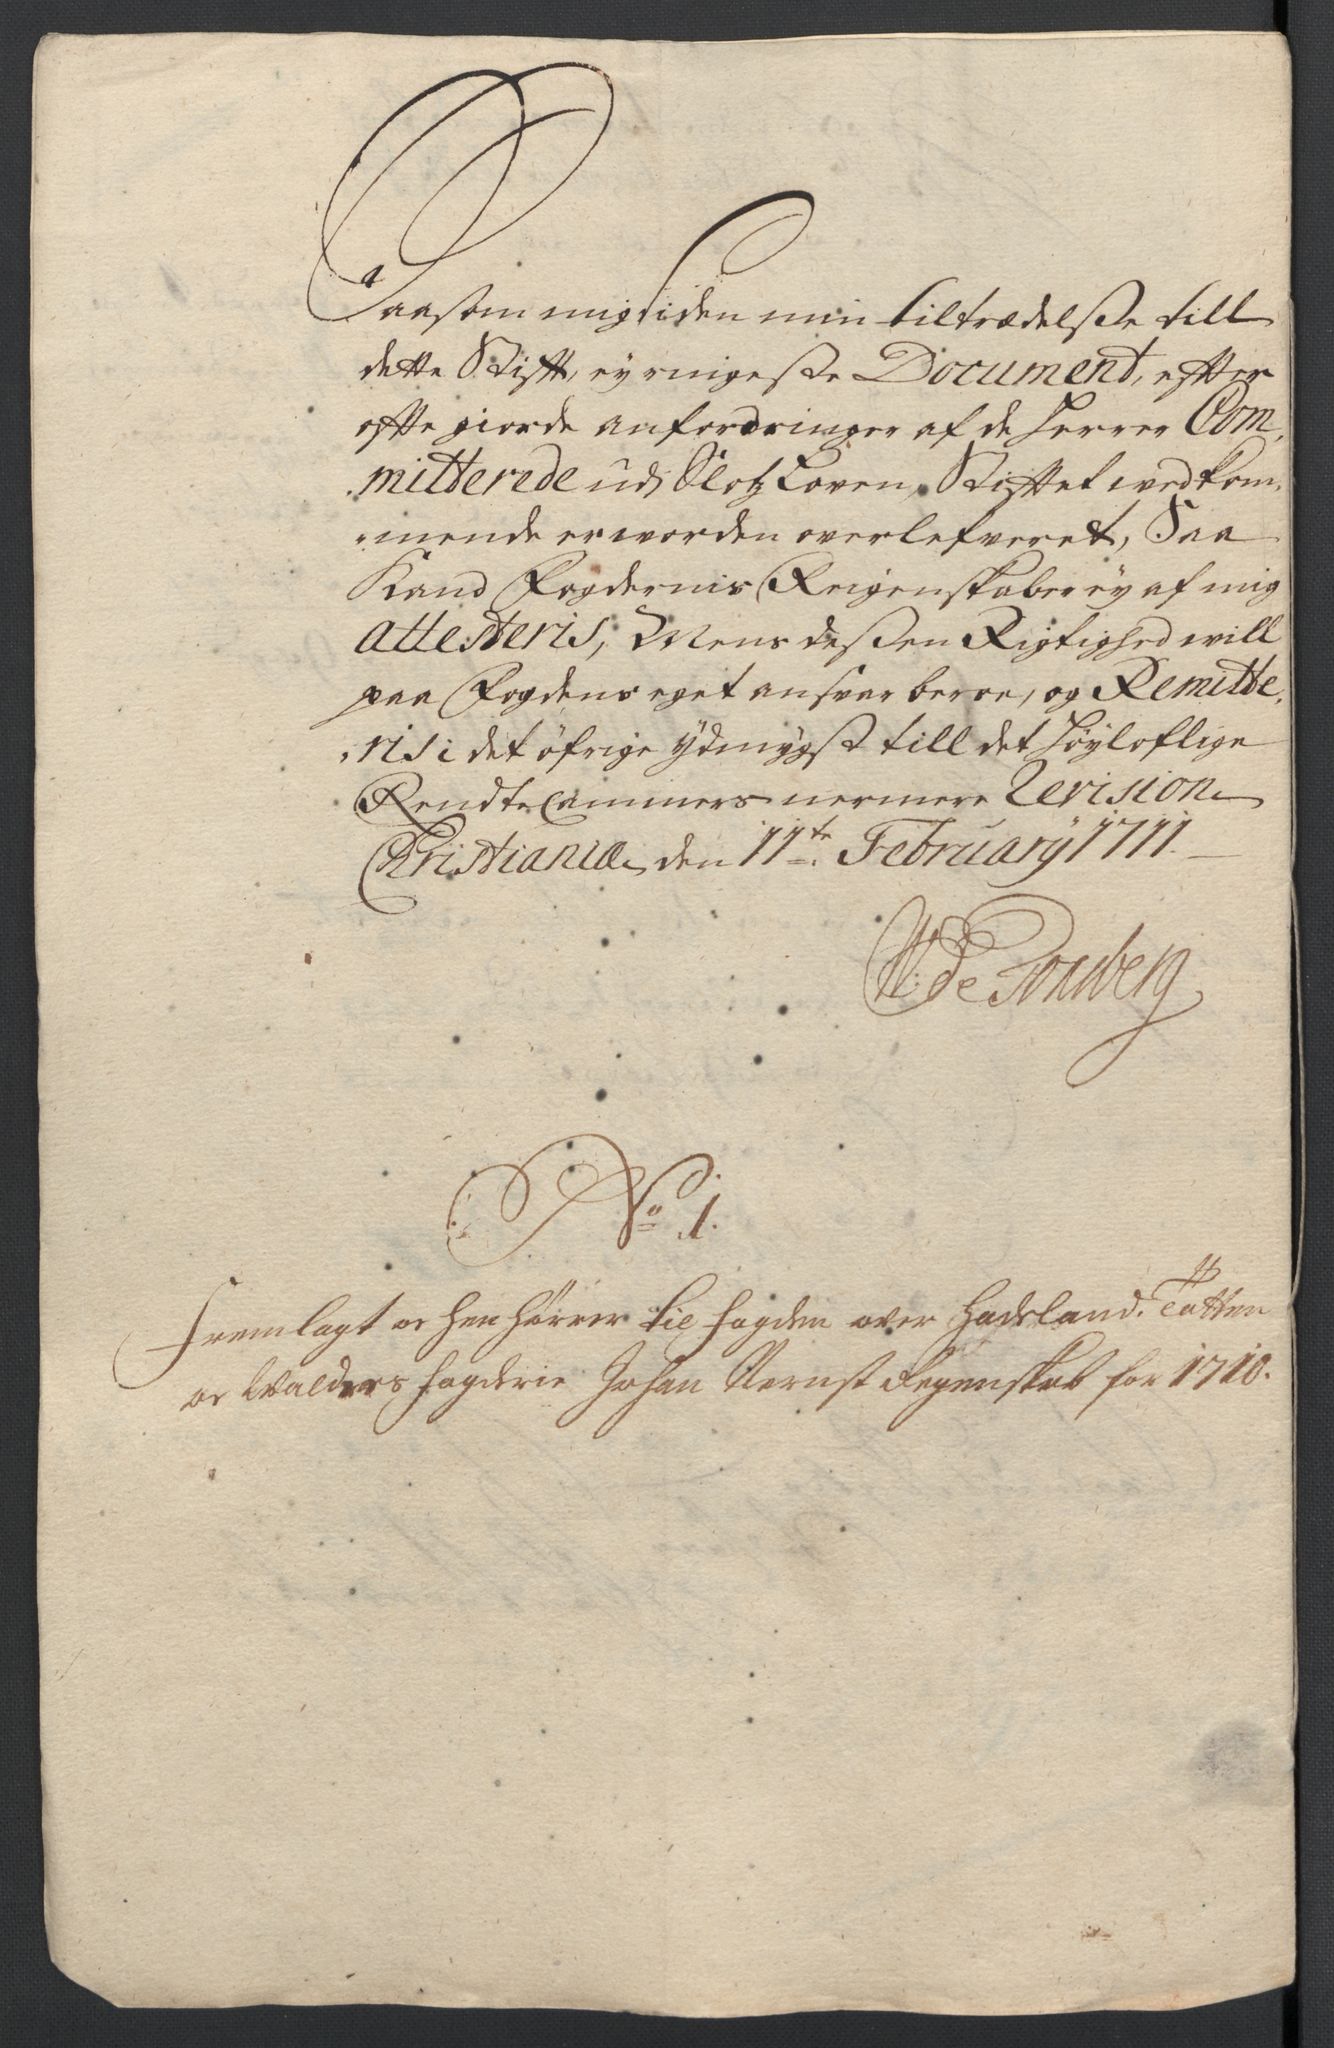 Saasom mig siden min tiltrædelsße till
dette Stift, ey ringeste Document, efter
offte giorde anfordringer af de Herrer Com,
,mitterede udj Slotz Loven, Stiftet wedkom,
,mende er worden overlefveret, Saa
Kand Fogdernis Reigenskaber ey af mig
attesteris, Mens desßen Rigtighed will
paa Fogdens eget ansvar beroe, og Remitte,
,ris i det öfrige ydmygst till det Höyloflige
RendteCammers nermere Revision
Christianiæ den 11te. February 1711.
W: de Tonsberg
No 1.
Fremlagt og hen hörrer til fogden over Hadeland. Totten
og Walders fogderie Johan Nernst Regenskab for 1710.